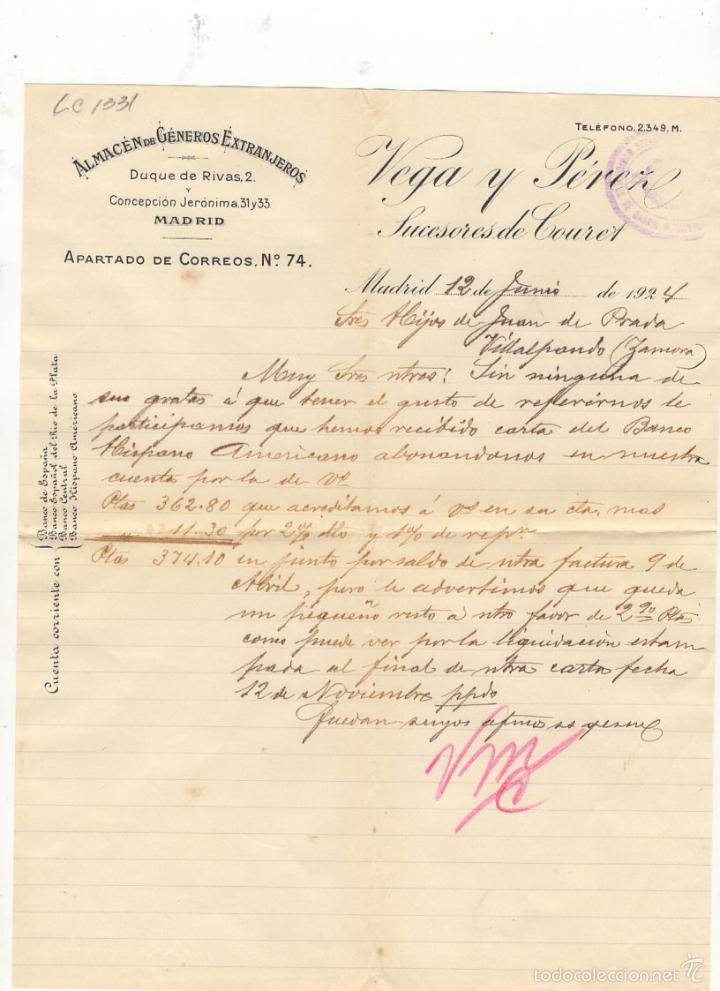 LC 1331
ALMACÉN DE GÉNEROS EXTRANJEROS
Duque de Rivas, 2.
Y
Concepción Jerónima, 31 y 33.
MADRID
APARTADO DE CORREOS, Nº 74.
TELÉFONO, 2.349, M.
Vega y Pérez
Sucesores de Couret
Madrid 12 de Junio de 1924
Sres Hijos de Juan de Prada
Villalpando (Zamora)
Muy Sres ntros: Sin ninguna de
sus gratas á que tener el gusto de referirnos le
participamos que hemos recibido carta del Banco
Hispano Americano abonandonos en nuestra
cuenta por la de Vs
Ptas 362.80 que acreditamos á Vs en su cta, mas
" 11.30 por 2% dto y 1% de repn
Ptas 374.10 en junto por saldo de ntra factura 9 de
Abril, pero le advertimos que queda
un pequeño resto á ntro favor de 2.90 Ptas
como puede ver por la liquidación estam
pada al final de ntra carta fecha
12 de Noviembre ppdo
Quedan suyos afmos ss
Cuenta corriente con
Banco de España
Banco Español del Río de la Plata
Banco Central
Banco Hispano Americano
todocoleccion.net